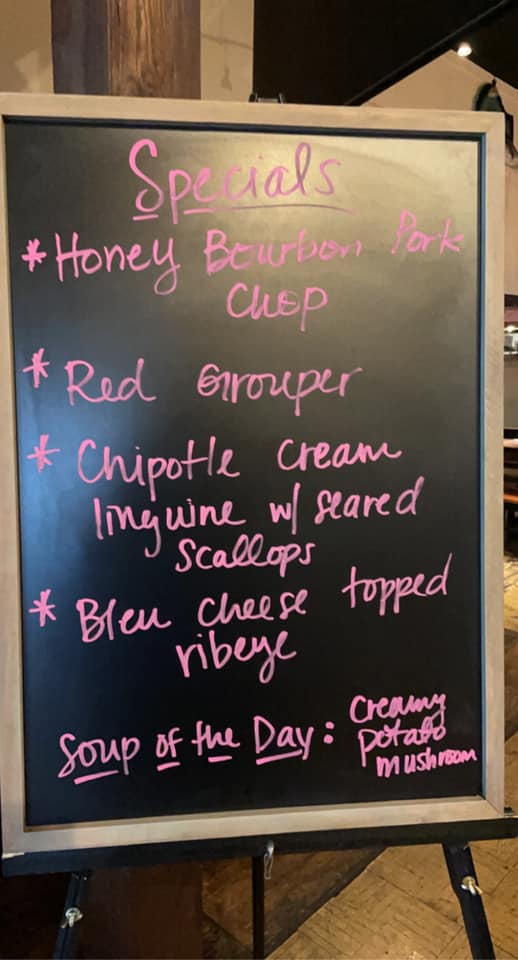 Specials
*Honey Bourbon Pork
Chop
* Red Grouper
* Chipotle cream
linguine w/ seared
scallops
* Bleu cheese topped
ribeye
Soup of the Day: Creamy
potato
mushroom